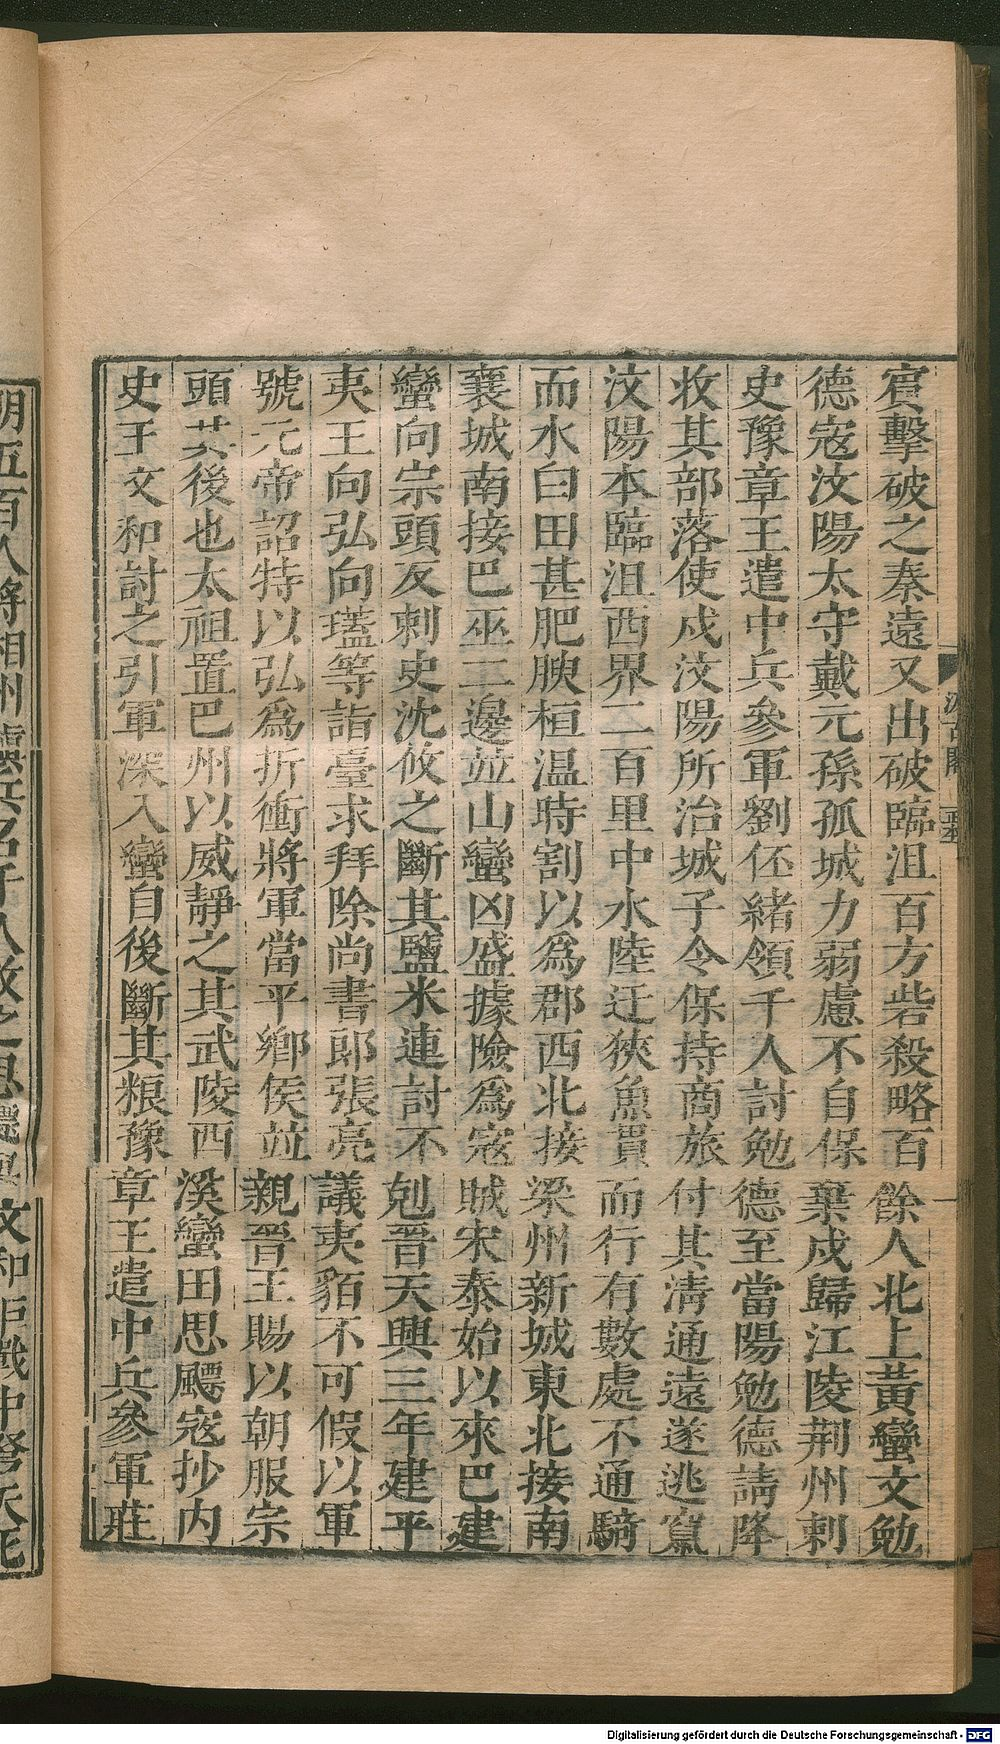 賔擊破之秦遠又出破臨沮百方砦殺略百餘人北上黃蠻文勉
德宼汶陽太守戴元孫孤城力弱慮不自保棄戍歸江陵荆州刺
史豫章王遣中兵參軍劉伾緒領千人討勉德至當陽勉德請降
收其部落使戍汶陽所治城子令保持商旅付其淸通遠遂逃竄
汶陽本臨沮西界二百里中水陸迂狹魚貫而行有數處不通騎
而水白田甚肥腴桓温時割以爲郡西北接梁州新城東北接南
襄城南接巴巫二邊竝山蠻凶盛據險爲宼賊宋泰始以來巴建
蠻向宗頭反刺史沈攸之斷其鹽米連討不剋晉天興三年建平
夷王向弘向瓂等詣臺求拜除尚書郎張亮議夷貊不可假以軍
號元帝詔特以弘爲折衝將軍當平鄉侯竝親晉王賜以朝服宗
頭其後也太祖置巴州以威靜之其武陵西溪蠻田思飄宼抄内
史王文和討之引軍深入蠻自後斷其粮豫章王遣中兵參軍莊